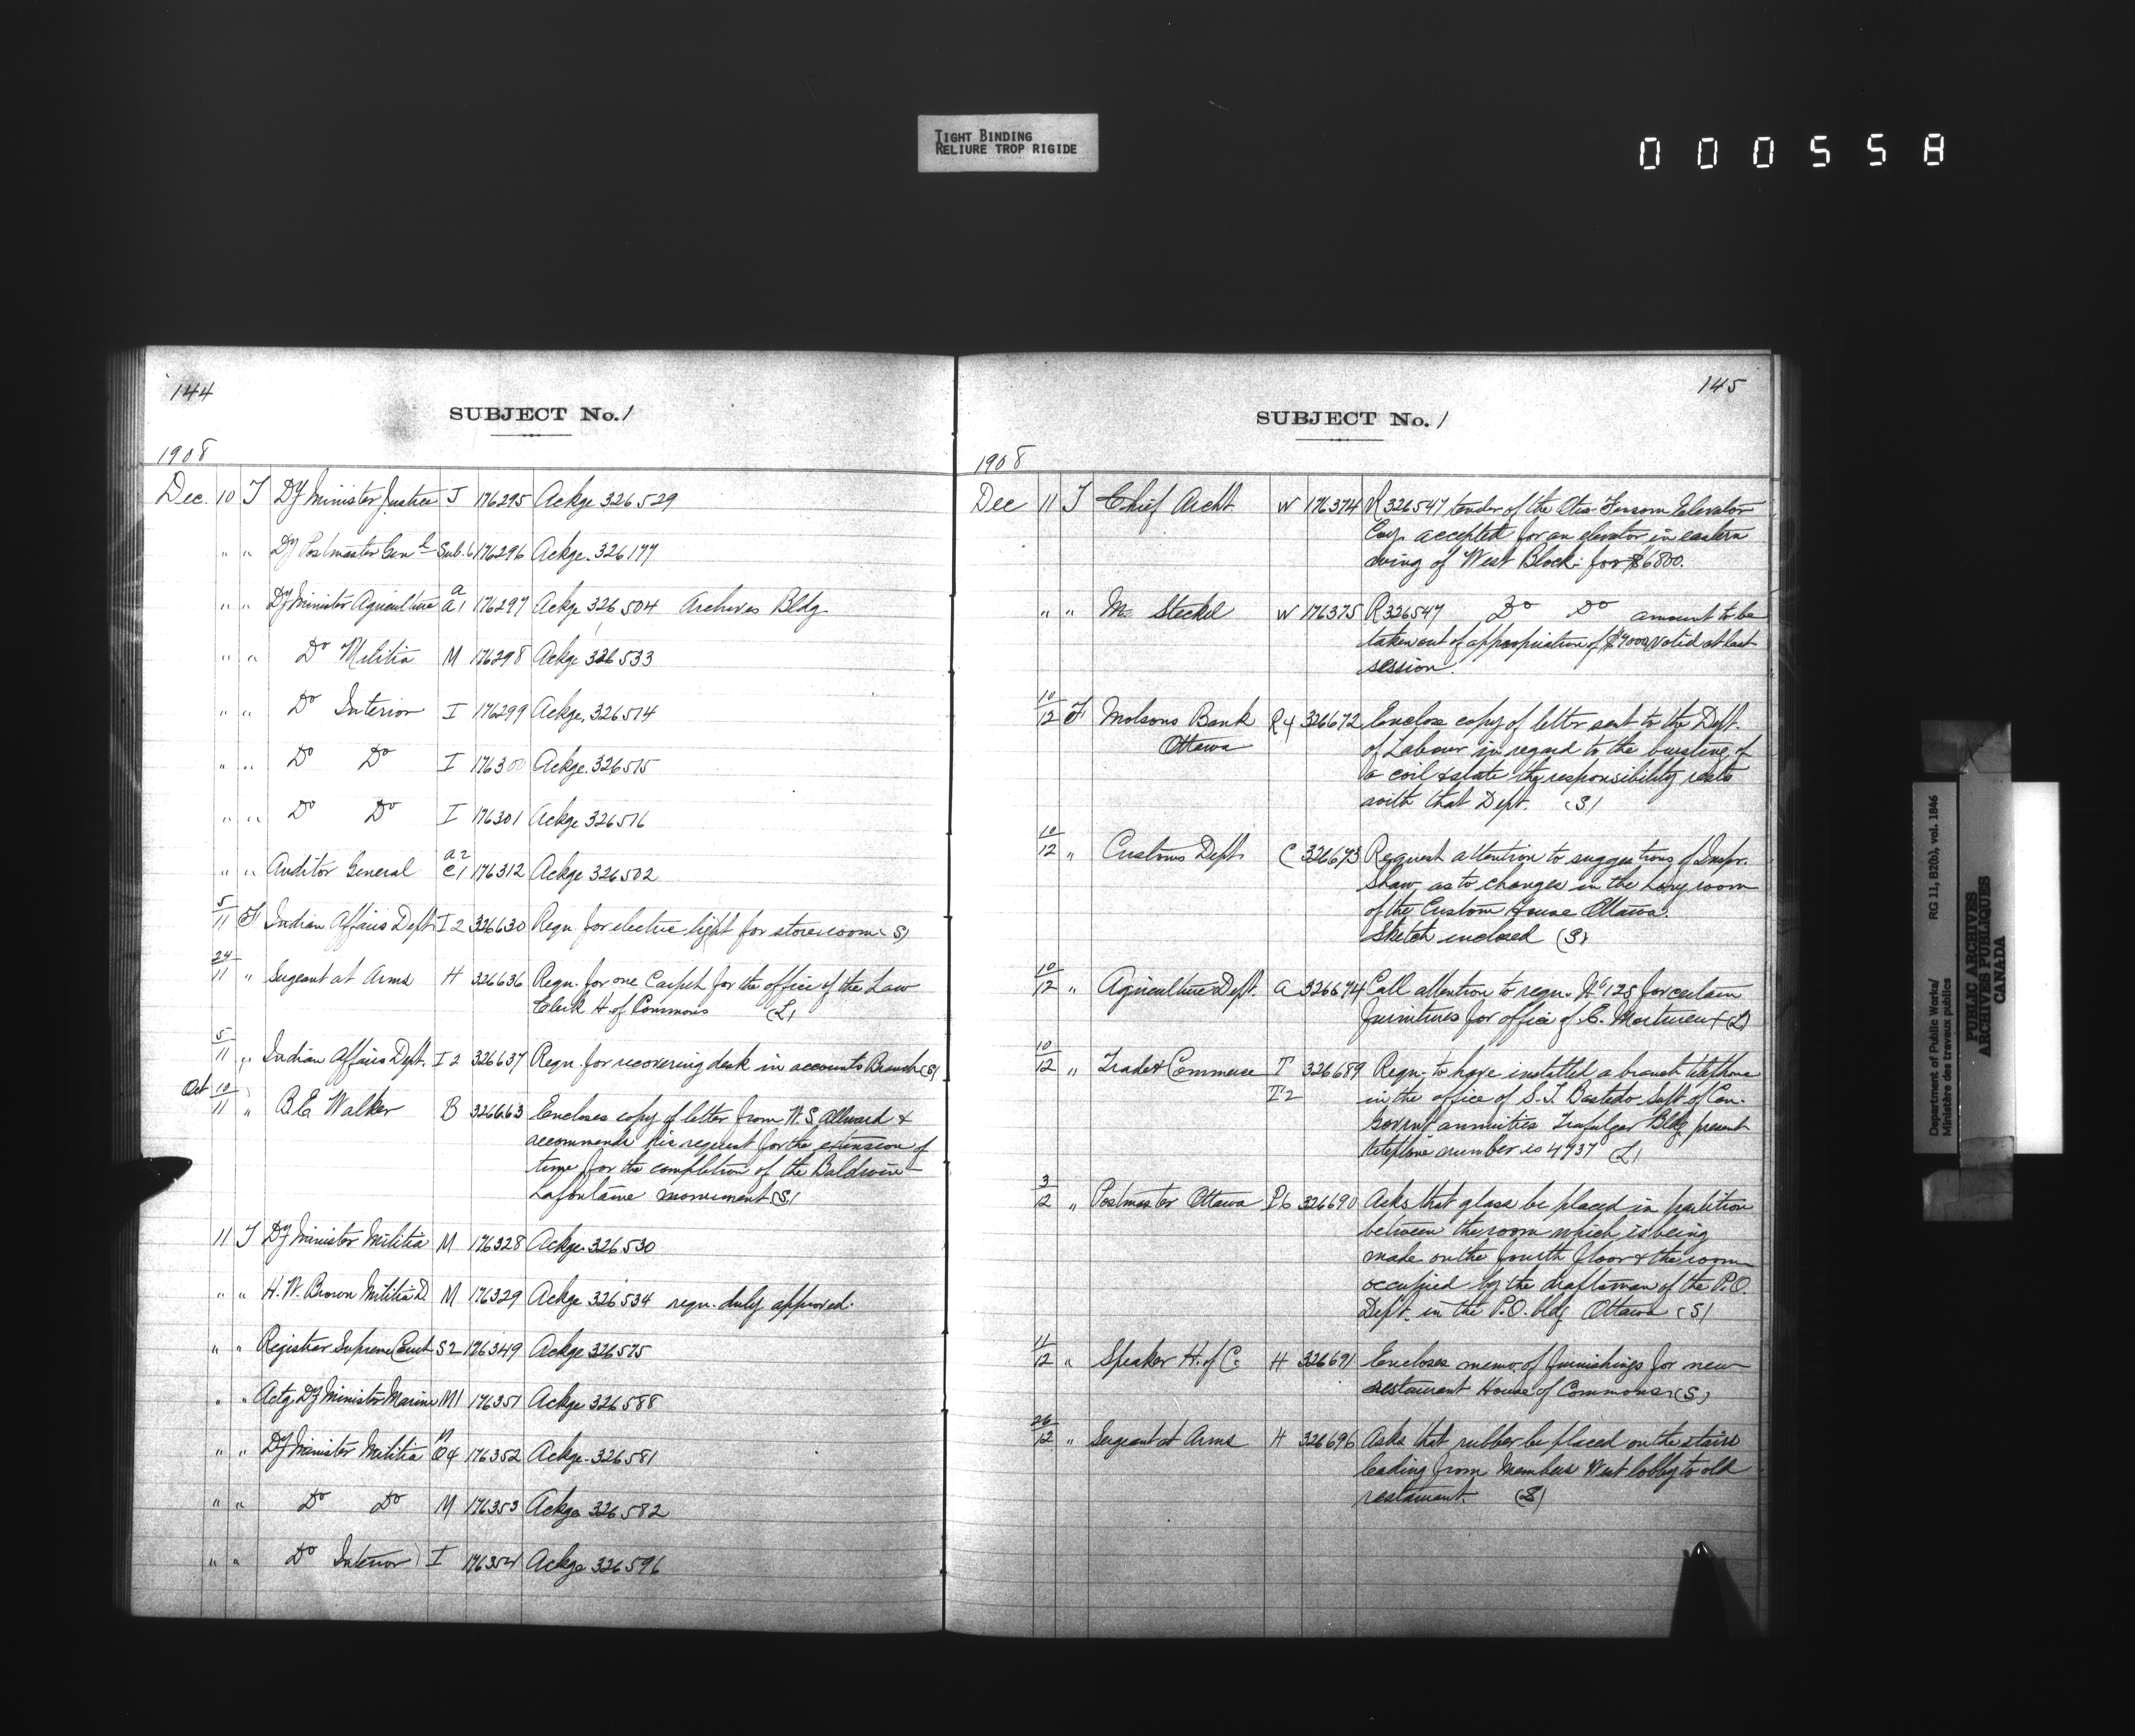 TIGHT BINDING
RELIURE TROP RIGIDE
000558
144
SUBJECT No. 1
1908
Dec. 10 T Dy Minister Justice J 176295 Ackge 326529
" " Dy Postmaster Genl Sub. 6 176296 Ackge. 326177
" " Dy Minister Agriculture a A1 176297 Ackge 326504 Archives Bldg.
" " Do Militia M 176298 Ackge 326533
" " Do Interior I 176299 Ackge. 326514
" " Do Do I 176300 Ackge. 326515
" " Do Do I 176301 Ackge 326516
" " Auditor General a2 C1 176312 Ackge 326502
5/11 F Indian Affairs Dept. I2 326630 Reqn. for electric light for storeroom (S)
24/11 " Sergeant at Arms H 326636 Reqn. for one Carpet for the office of the Law
Clerk H. of Commons (L)
5/11 " Indian Affairs Dept. I2 326637 Reqn. for recovering desk in accounts Branch (S)
Oct 10/11 " B.E. Walker B 326663 Encloses copy of letter from W.S. Allward &
recommends his request for the extension of
time for the completion of the Baldwin
Lafontaine monument (S)
11 T Dy Minister Militia M 176328 Ackge. 326530
" " H.W. Brown Militia D. M 176329 Ackge 326534 reqn. duly approved.
" " Registrar Supreme Court S2 176349 Ackge 326575
" " Actg. Dy Minister Marine M1 176351 Ackge 326588
" " Dy Minister Militia M O4 176352 Ackge. 326581
" " Do Do M 176353 Ackge 326582
" " Do Interior I 176354 Ackge 326596
145
SUBJECT No. 1
1908
Dec 11 T Chief Archt W 176374 R326547 tender of the Otis Fensom Elevator
Coy. accepted for an elevator in eastern
wing of West Block for $6800.
" " Mr Steckel W 176375 R326547 Do Do amount to be
taken out of appropriation of $7000 voted at last
session.
10/12 F Molsons Bank R4 326672 Enclose copy of letter sent to the Dept.
Ottawa of Labour in regard to the bursting of
a coil & state the responsibility rests
with that Dept. (S)
10/12 " Customs Dept. C 326673 Request attention to suggestions of Inspr.
Shaw, as to changes in the Long room
of the Custom House Ottawa.
Sketch enclosed (S)
10/12 " Agriculture Dept. A 326674 Call attention to reqn. No 125 for certain
furnitures for office of C. (L)
10/12 " Trade & Commerce T 326689 Reqn. to have installed a branch telephone
T2 in the office of S.T. Bastedo Supt. of Can.
Govrnt annuities Trafalgar Bldg present
telephone number is 4737 (L)
3/12 " Postmaster Ottawa P6 326690 Asks that glass be placed in partition
between the room which is being
made on the fourth floor & the room
occupied by the draftsman of the P.O.
Dept. in the P.O. bldg Ottawa (S)
11/12 " Speaker H. of C. H 326691 Encloses memo. of furnishings for new
restaurant House of Commons (S)
26/12 " Sergeant at Arms H 326696 Asks that rubber be placed on the stairs
leading from Members West lobby to old
restaurant. (S)
Department of Public Works/ RG 11, B2(b), vol. 1846
Ministère des travaux publics
PUBLIC ARCHIVES
ARCHIVES PUBLIQUES
CANADA